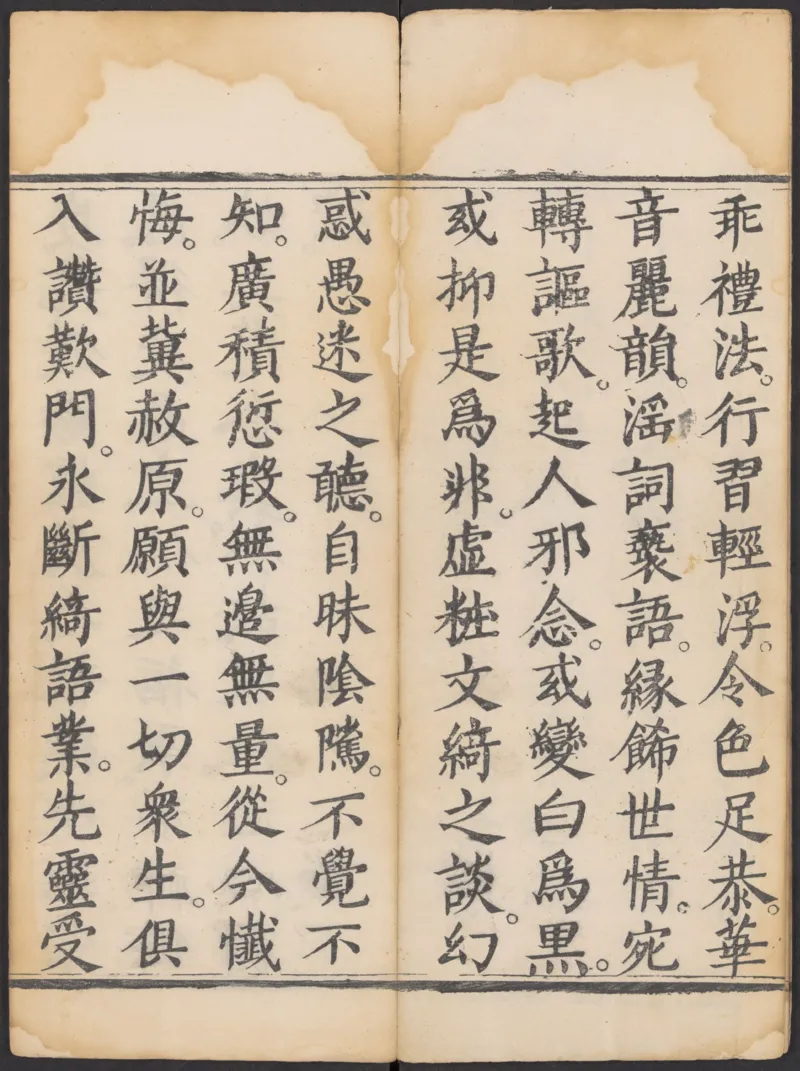 乖禮法。行習輕浮。令色足恭。華
音麗韻。滛詞䙝語。緣飾世情。宛
轉謳歌。起人邪念。或變白爲黒。
或抑是爲非。虛粧文綺之談。幻
惑愚迷之聽。自昧隂隲。不覺不
知。廣積愆瑕。無邊無量。從今懴
悔。並兾赦原。願與一切衆生。俱
入讚歎門。永斷綺語業。先靈受